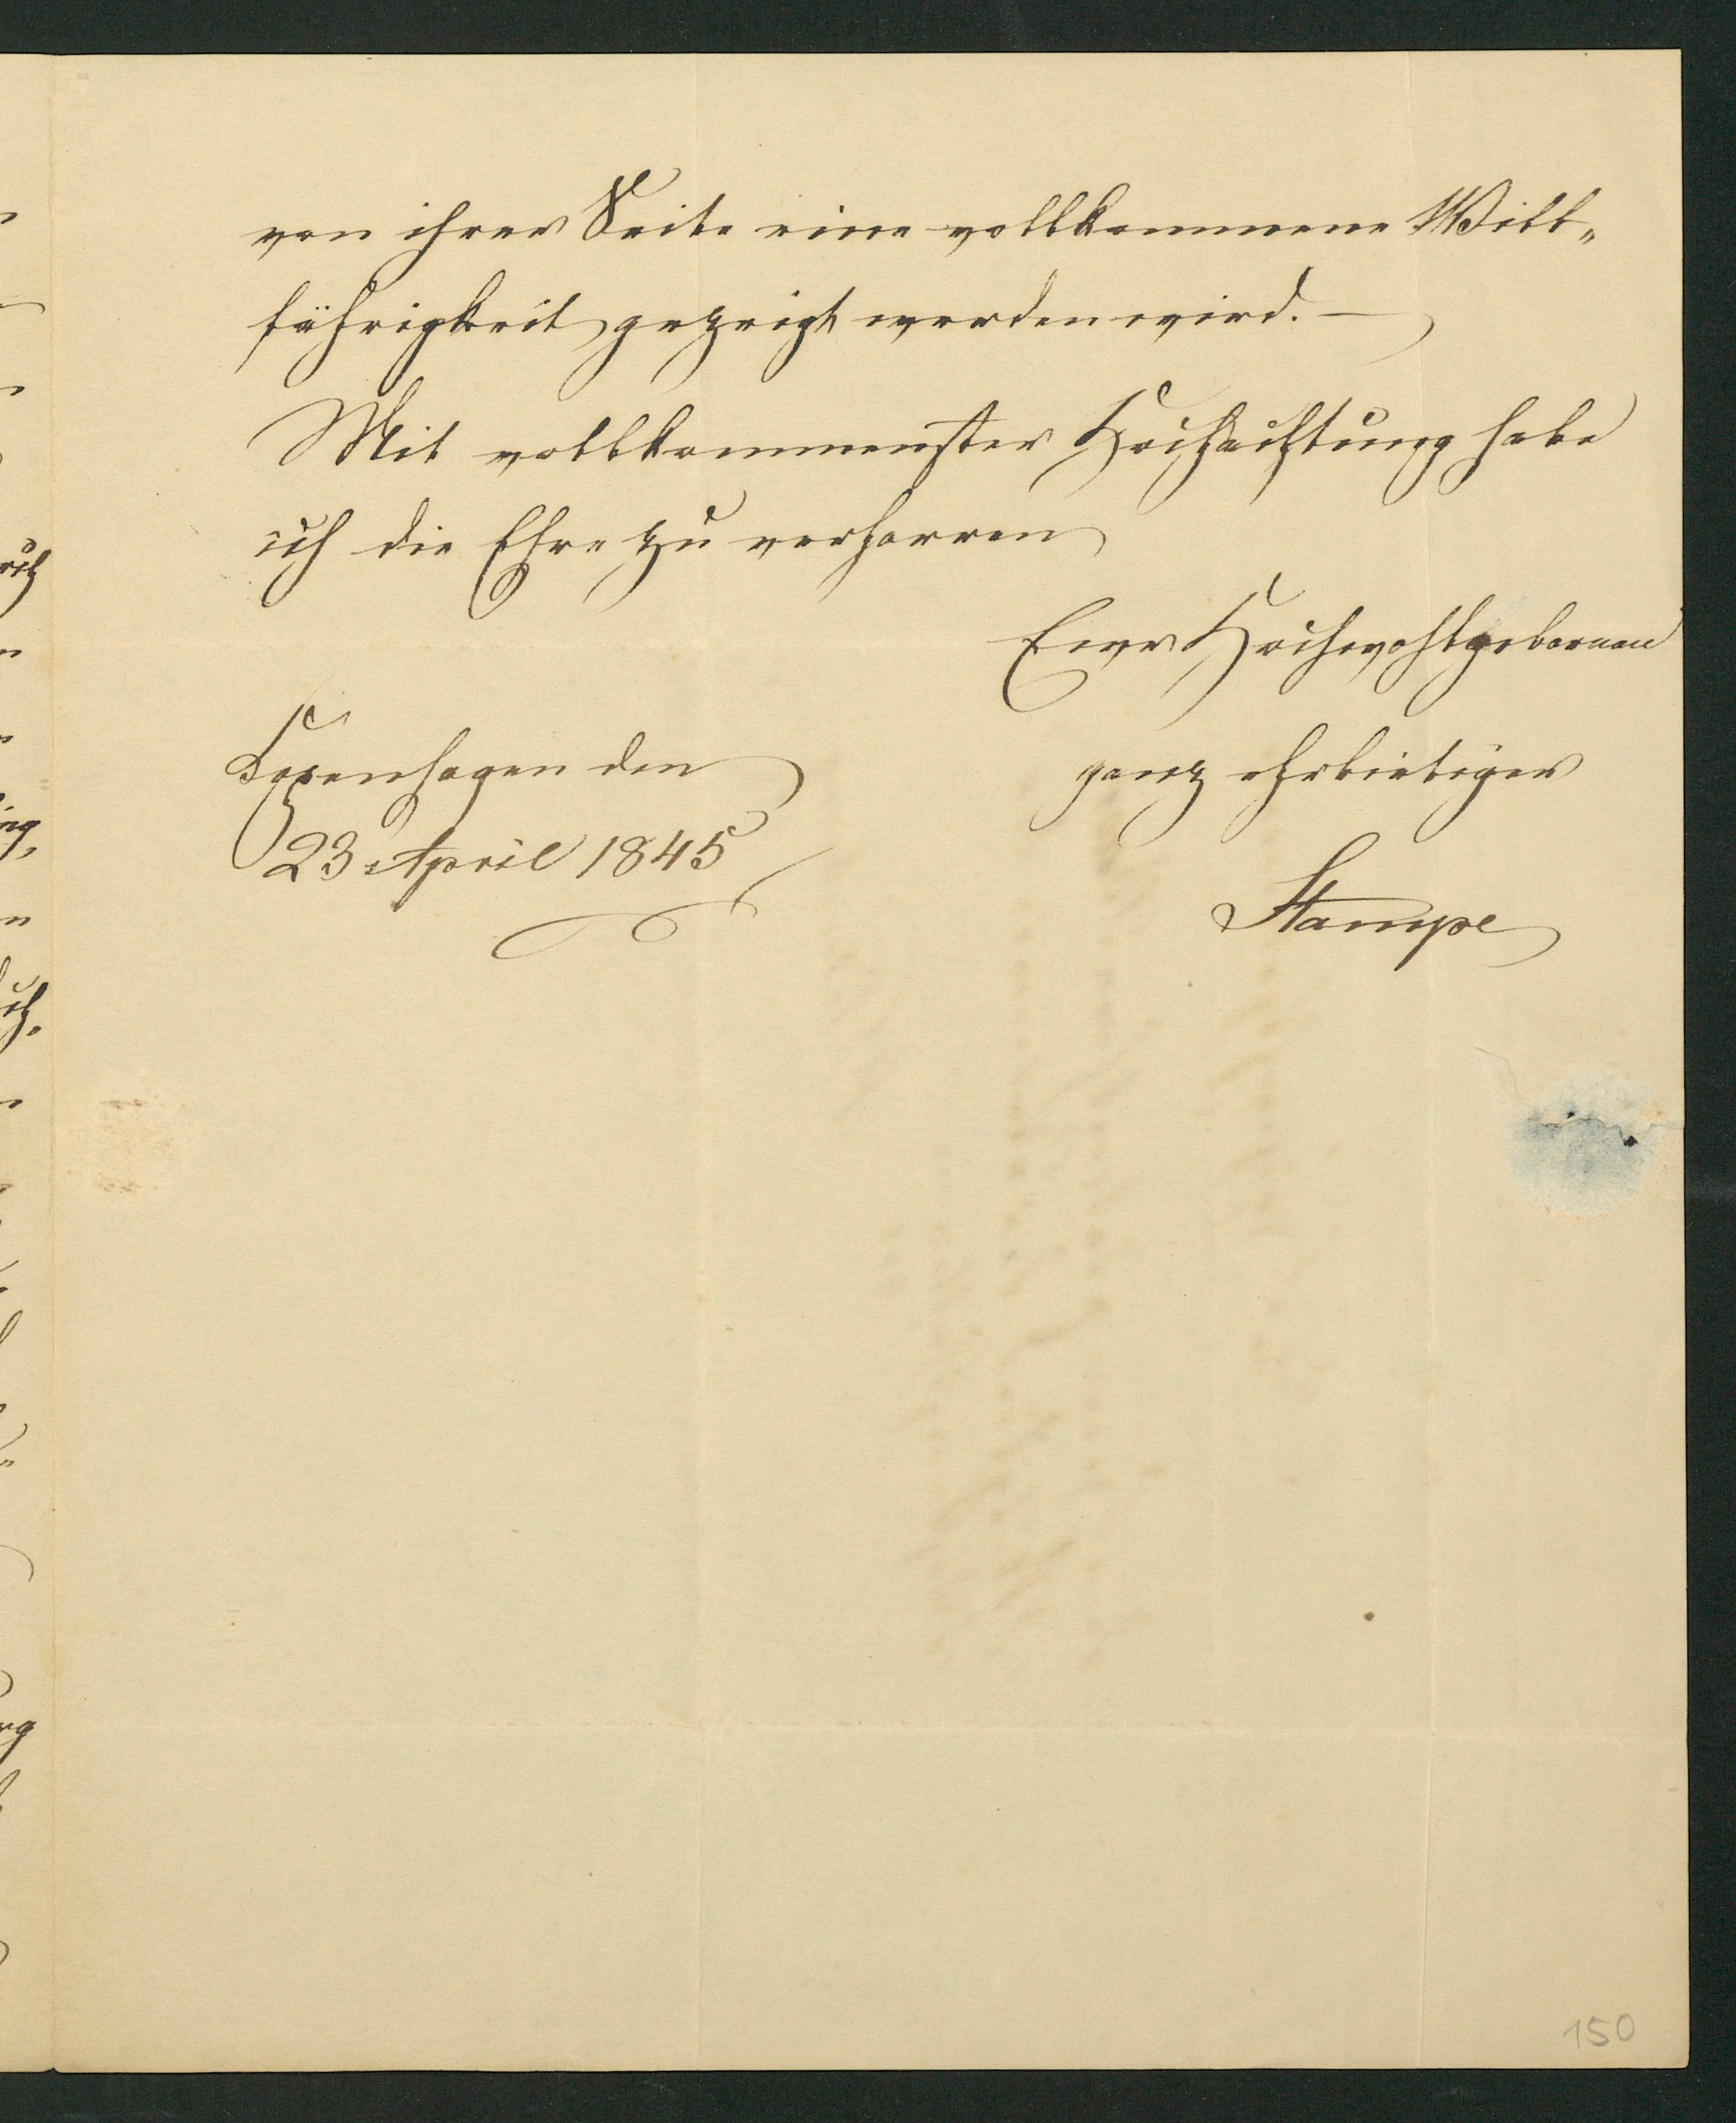 von ihrer Seite eine vollkommene Will„
fährigkeit gezeigt werden wird. —
Mit vollkommenster Hochachtung habe
ich die Ehre zu verharren
Ewr Hochwohlgebornen
Kopenhagen den
ganz ehrbietiger
23 April 1845
Stampe
150